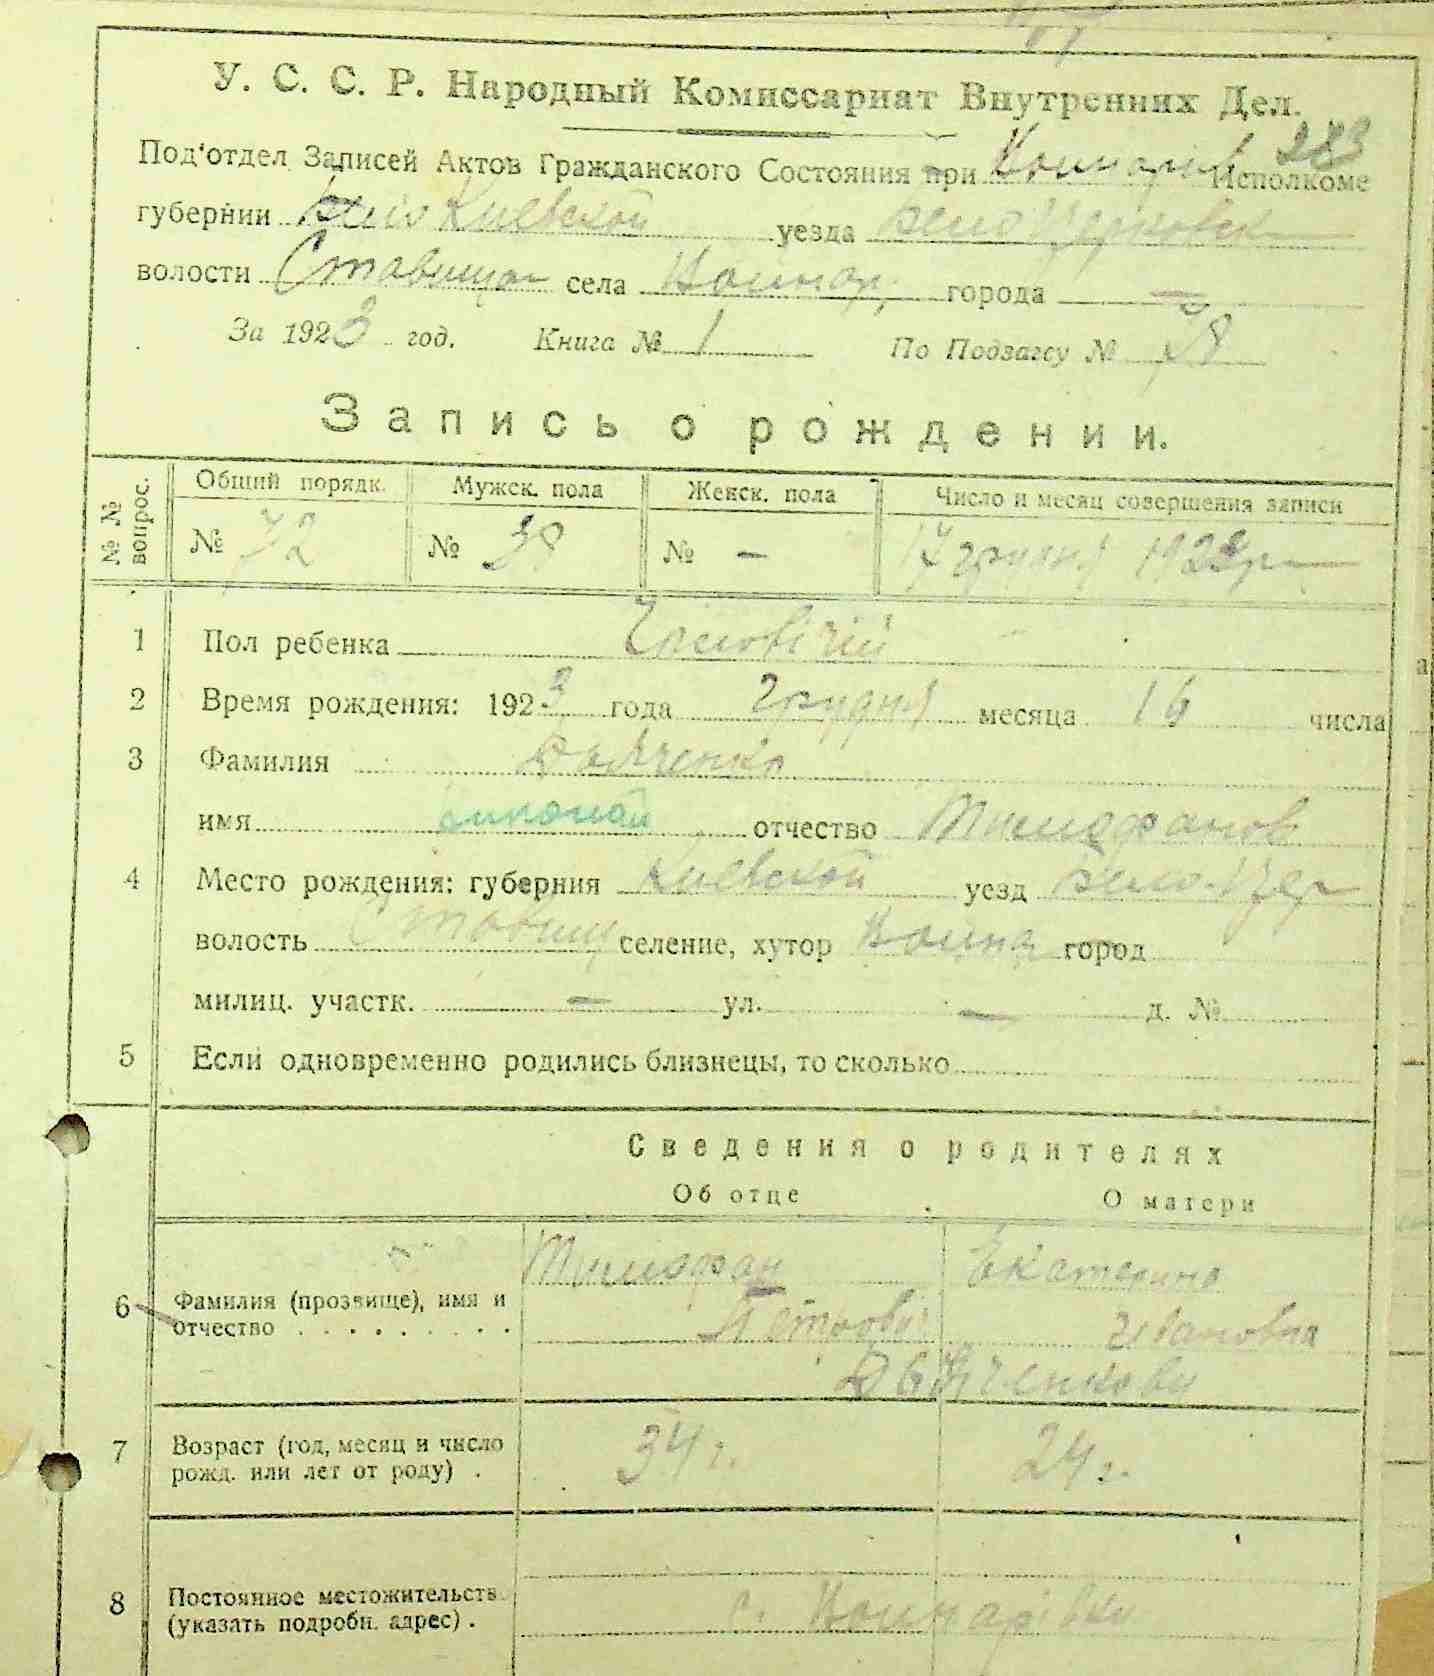 У. С. С. Р. Народный Комиссариат Внутренних Дел.
283
Под'отдел Записей Актов Гражданского Состояния при Исполкоме
губернии Киевской уезда Бело Церковск
волости Ставищан села города —
За 1923 год. Книга № 1 По Подзагсу №
Запись о рождении.
№ № вопрос. Общий порядк. Мужск. пола Женск. пола Число и месяц совершения записи
№ 72 № 38 № — 17 грудня 1923 р
1 Пол ребенка Чоловічій
2 Время рождения: 1923 года грудня месяца 16 числа
3 Фамилия Дьяченко
имя Николай отчество Митрофанов
4 Место рождения: губерния Киевской уезд Бело-Цер
волость Ставищ селение, хутор город
милиц. участк. — ул. — д. №
5 Если одновременно родились близнецы, то сколько
Сведения о родителях
Об отце О матери
6 Фамилия (прозвище), имя и отчество Митрофан Петрович Екатерина Ивановна
Дьяченкови
7 Возраст (год, месяц и число рожд. или лет от роду) . 34 г. 24 г.
8 Постоянное местожительств. (указать подробн. адрес) . с.